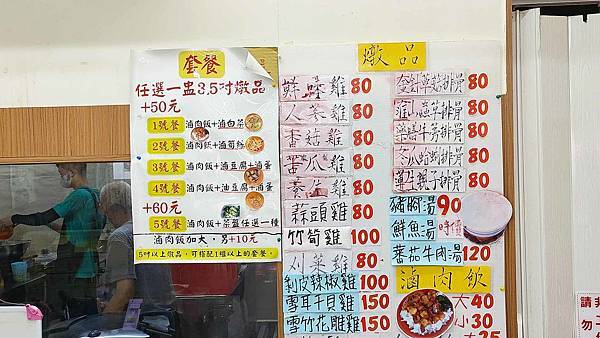 套餐
任選一盅3.5吋燉品
+50元
1號餐 滷肉飯+滷白菜
2號餐 滷肉飯+滷筍絲
3號餐 滷肉飯+滷豆腐+滷蛋
4號餐 滷肉飯+油豆腐+滷蛋
+60元
5號餐 滷肉飯+菜盤任選一種
滷肉飯加大,另+10元
5吋以上燉品,可搭配1組以上的套餐。
燉品
80
人蔘雞 80
香菇雞 80
苦瓜雞 80
養生雞 80
蒜頭雞 80
竹筍雞 100
刈菜雞 80
剝皮辣椒雞 100
雪耳干貝雞 150
雪竹花雕雞 150
排骨 80
排骨 80
排骨 80
冬瓜蛤蜊排骨 80
排骨 80
豬腳湯 90
鮮魚湯 時價
蕃茄牛肉湯 120
滷肉飯
大 40
小 30
25
請
勿